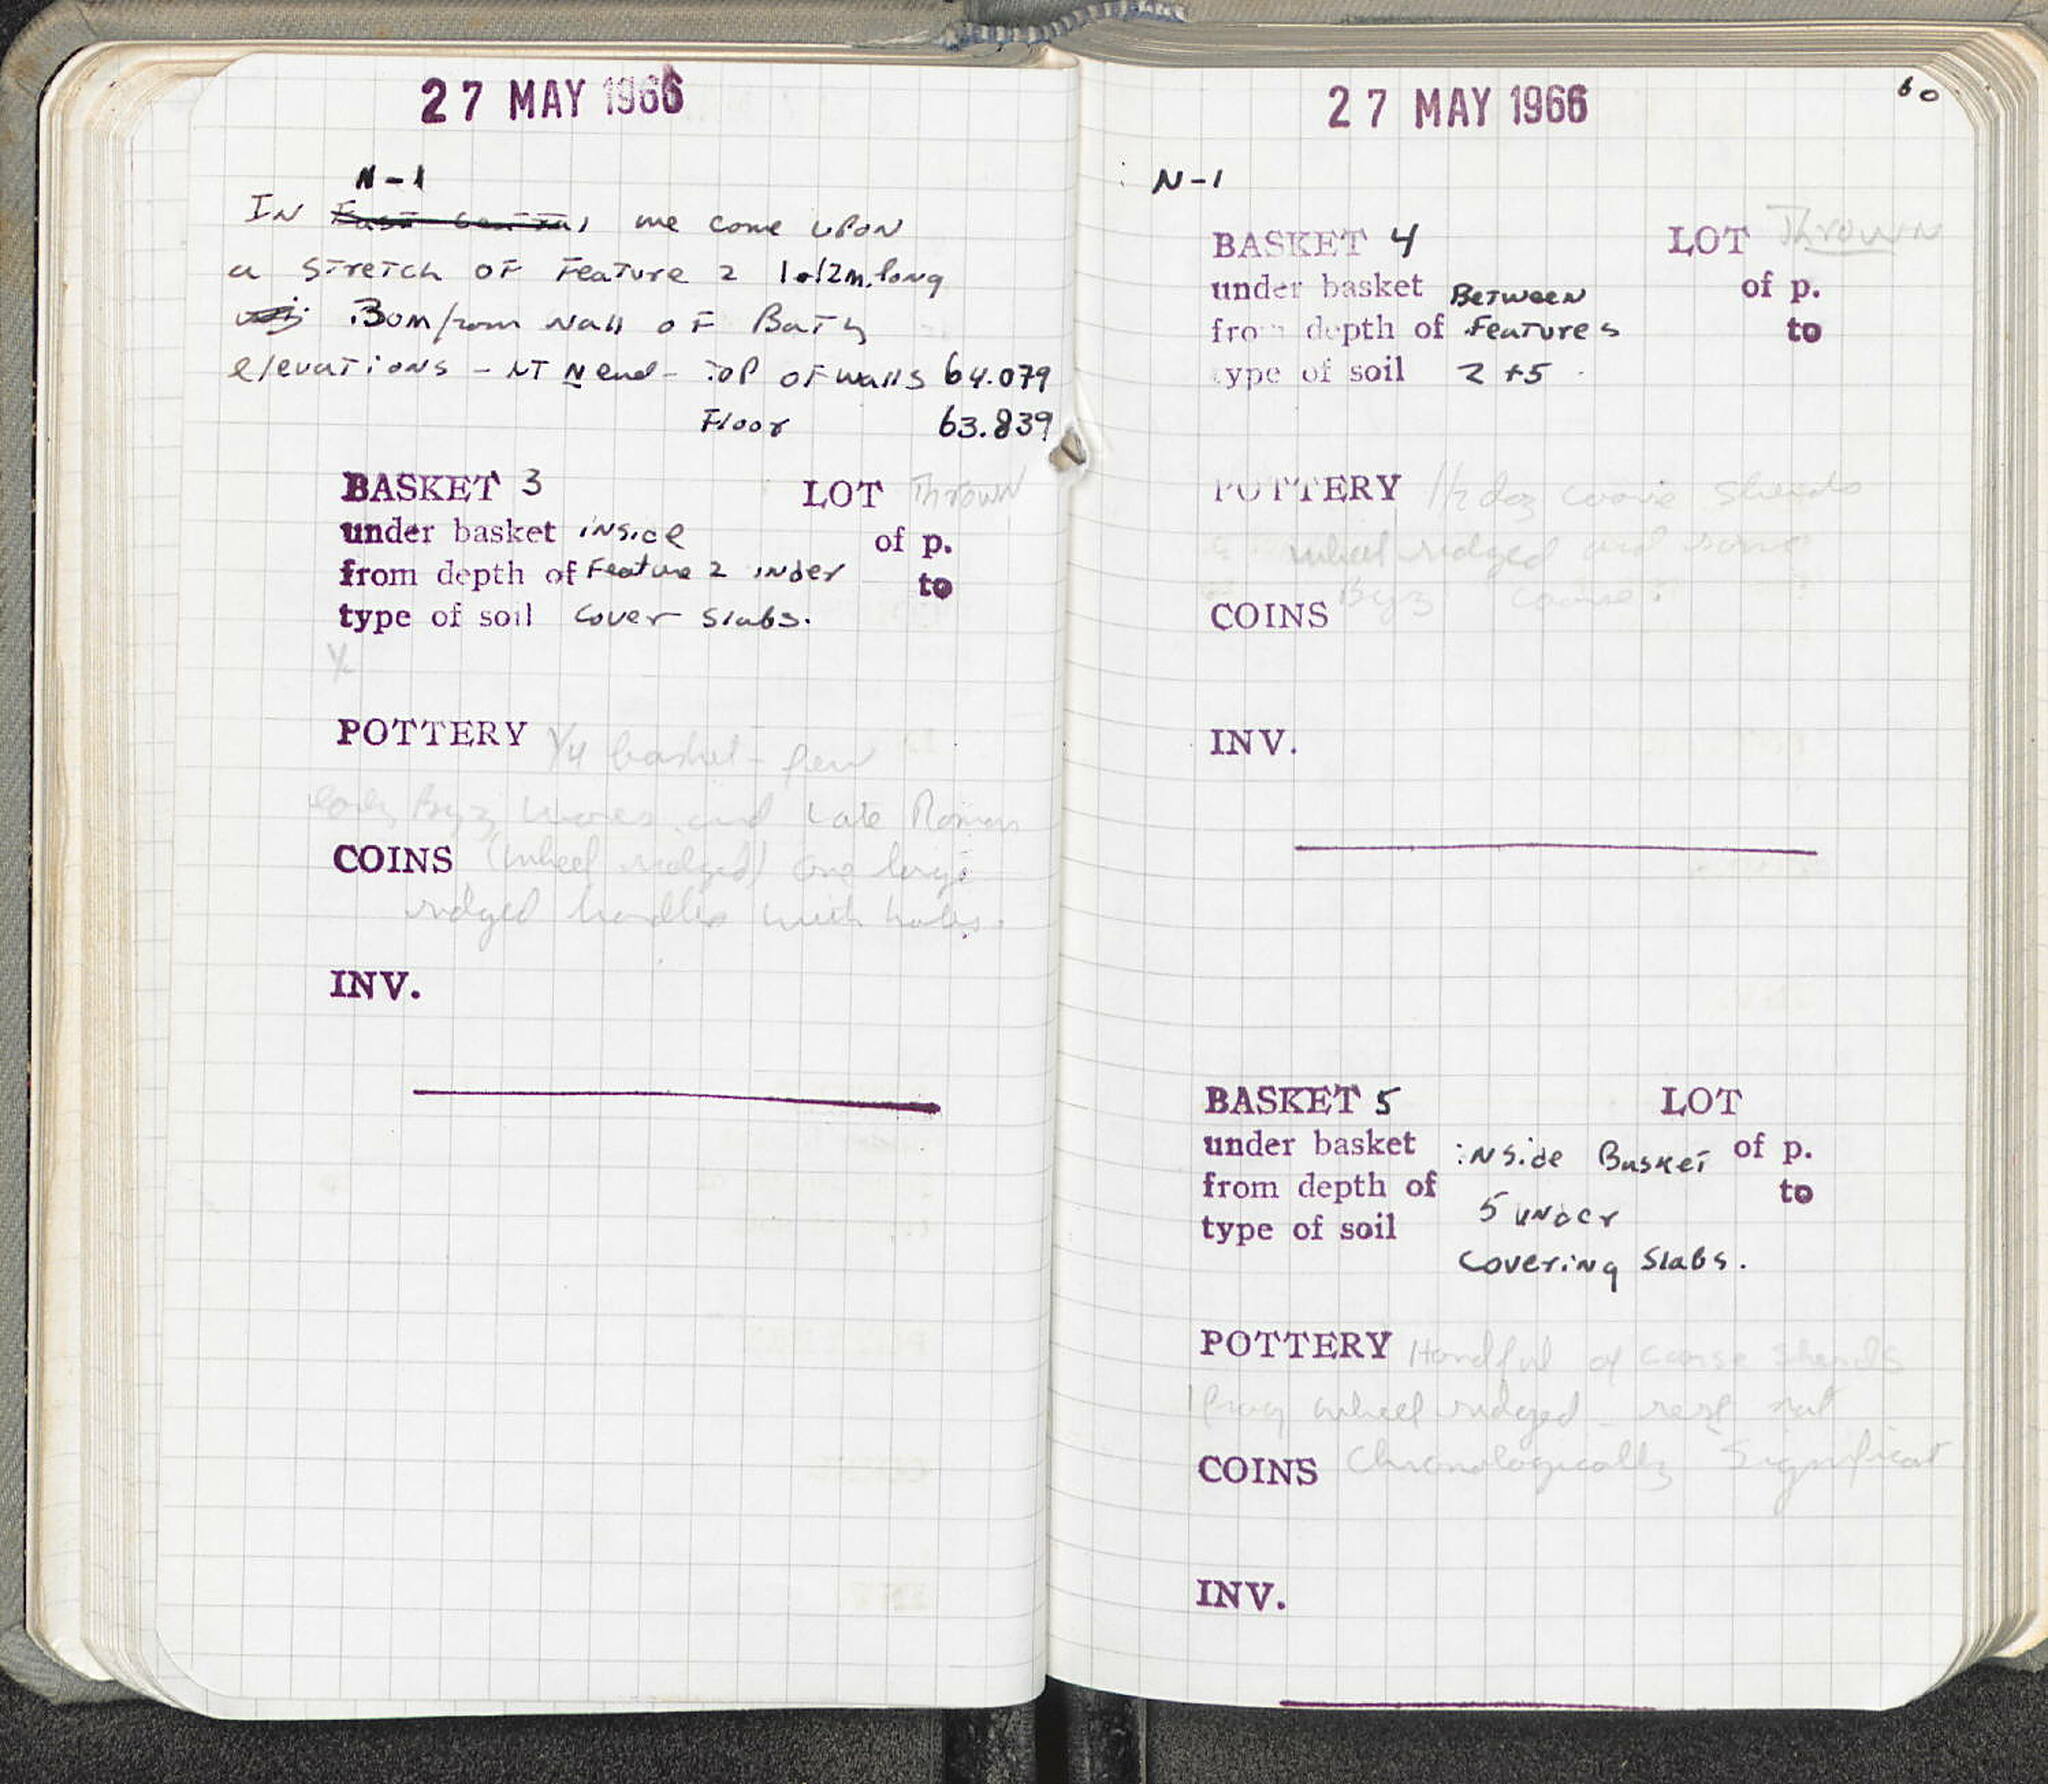 27 MAY 1966
N-1
IN East Central we come upon
a stretch of Feature 2 1.12m. long
.30m from wall of Bath
elevations - AT N end - Top of walls 64.079
Floor 63.839
BASKET 3 LOT Thrown
under basket inside of p.
from depth of Feature 2 under to
type of soil cover slabs.
POTTERY 1/4 basket - few
early Byz wares and Late Roman
COINS (wheel ridged) one large
ridged handle with holes.
INV.
27 MAY 1966
60
N-1
BASKET 4 LOT Thrown
under basket Between of p.
from depth of Features to
type of soil 2 + 5
POTTERY 1/2 doz coarse sherds
wheel ridged and some
Byz coarse.
COINS
INV.
BASKET 5 LOT
under basket inside Basket of p.
from depth of 5 under to
type of soil
covering slabs.
POTTERY Handful of coarse sherds
1 frag wheel ridged - rest not
COINS Chronologically Significant
INV.